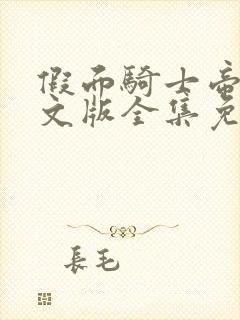 假面騎士帝
文版全集免
長毛